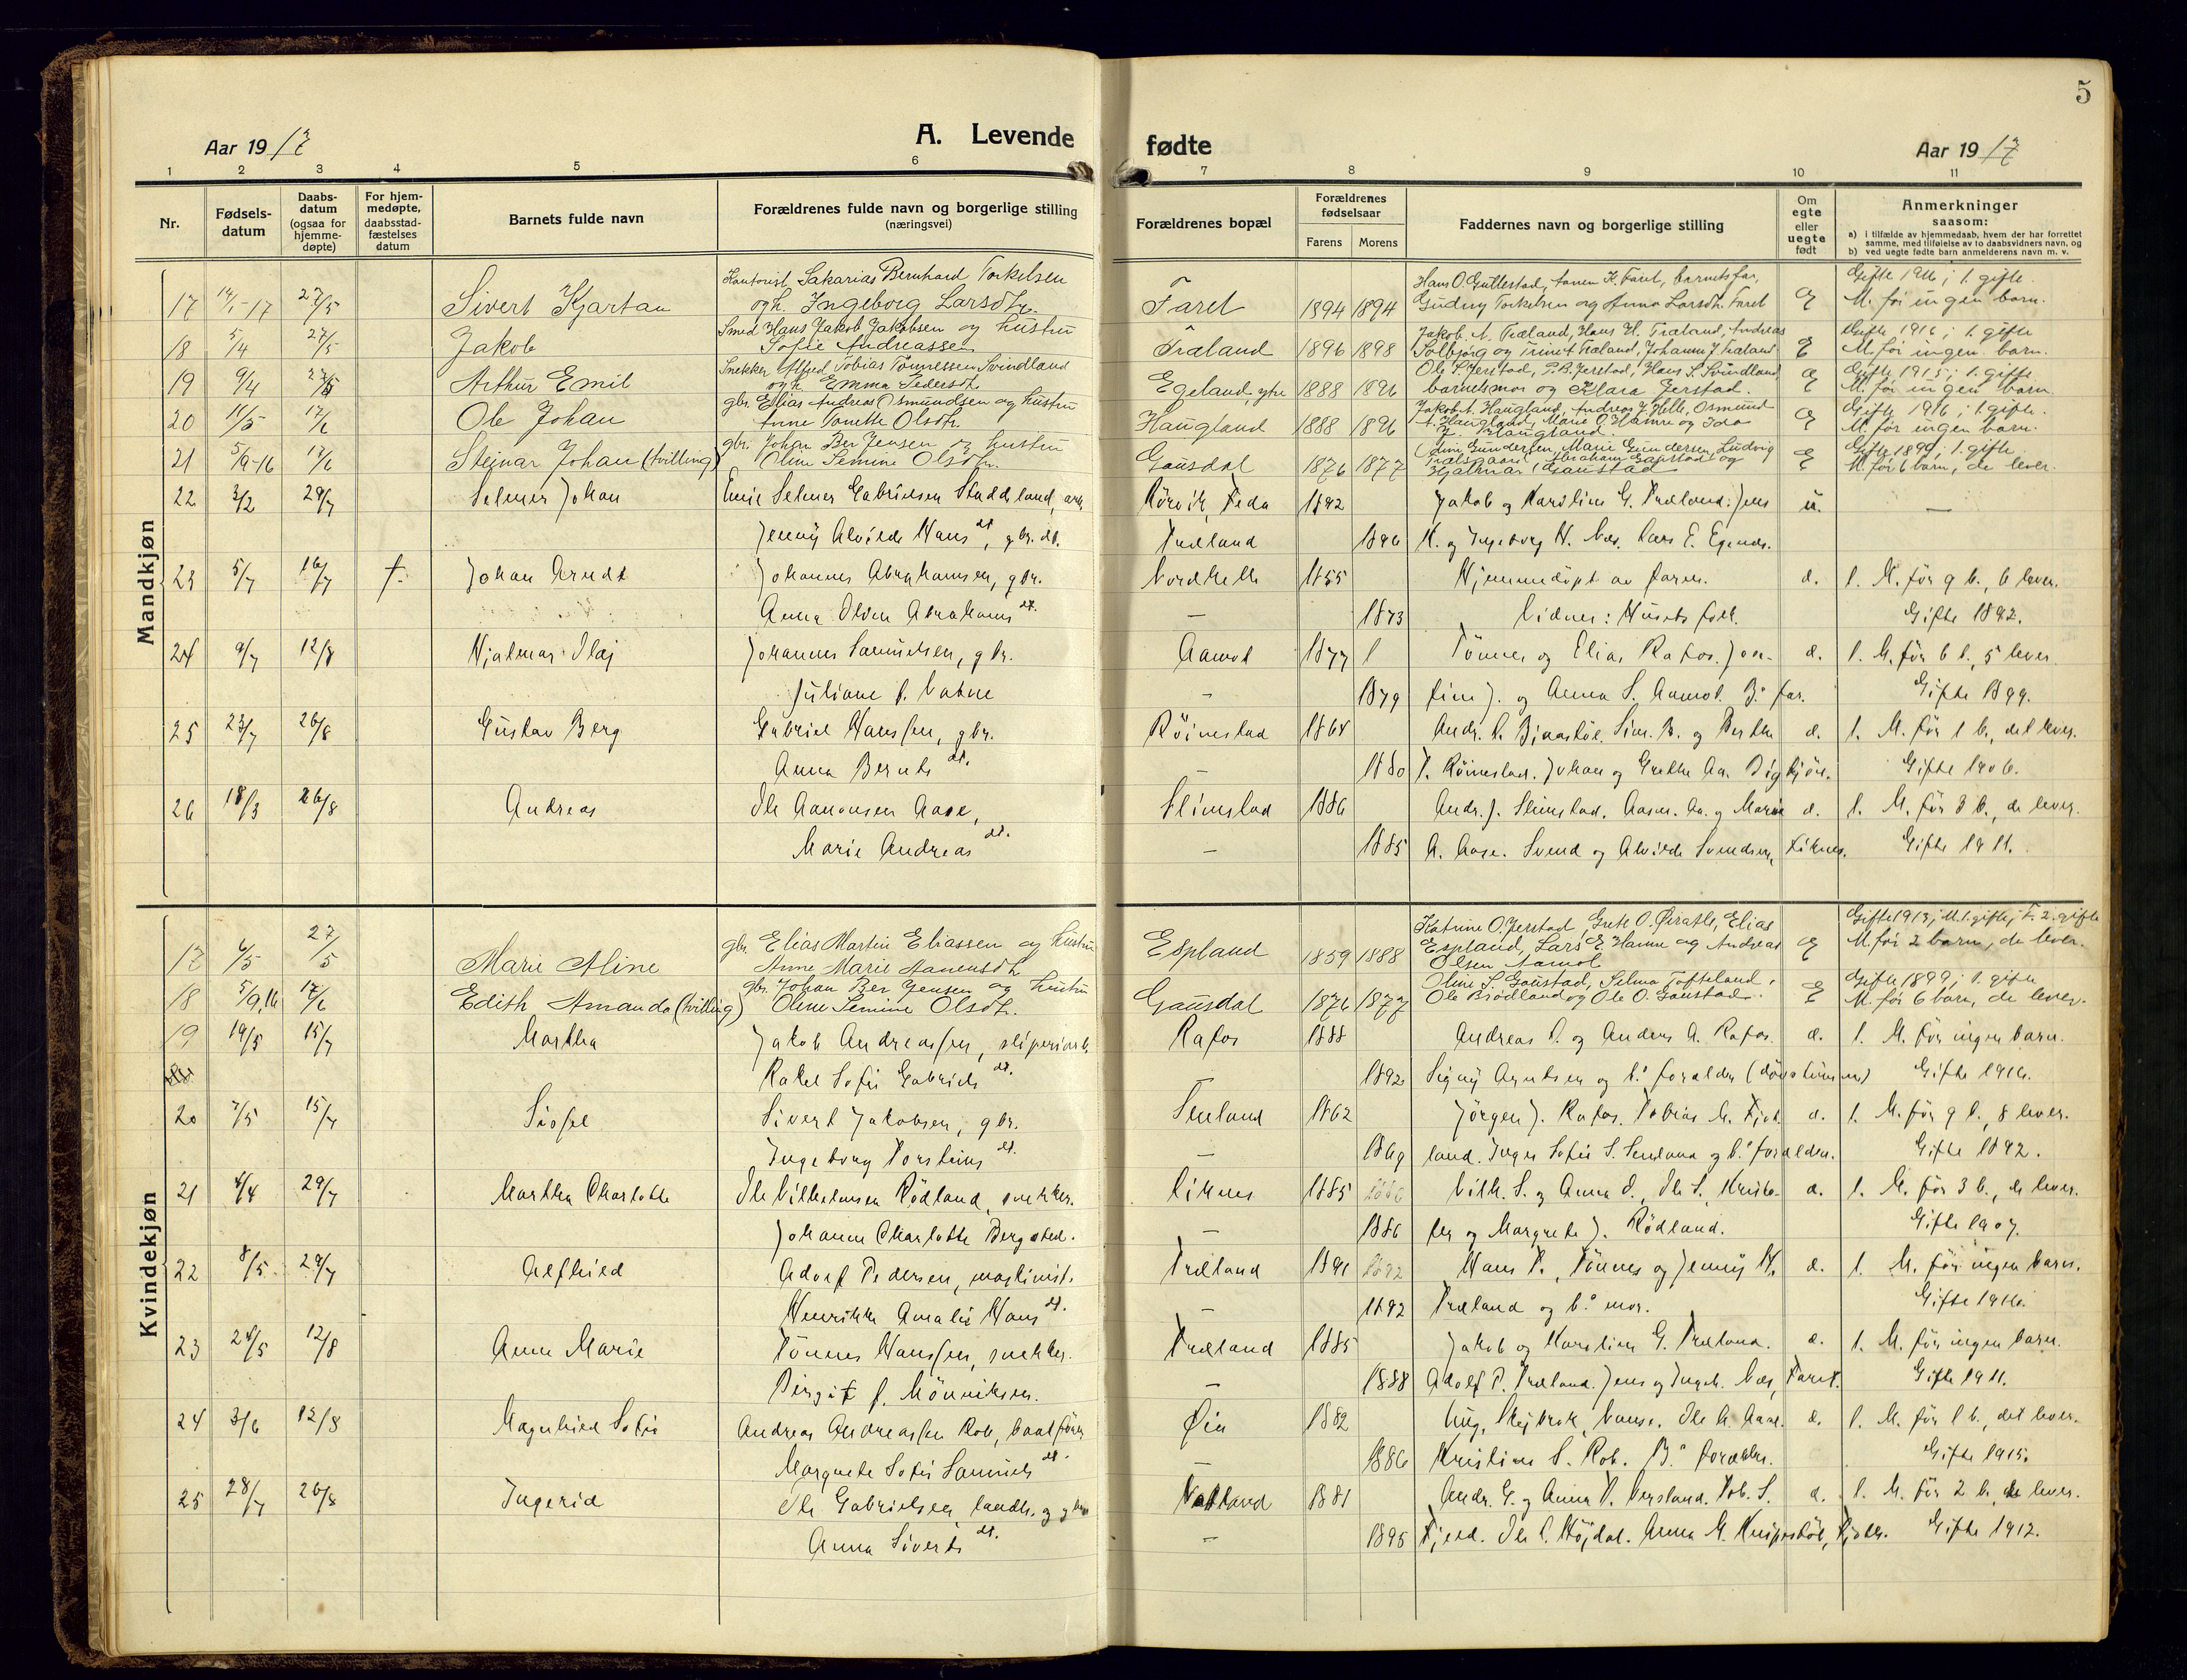 5
Aar 1917
A. Levende fødte
Aar 1917
1 2 3 4 5 6 7 8 9 10 11
Nr.
Fødsels-datum
Daabs-datum (ogsaa for hjemme-døpte)
For hjem-medøpte, daabsstad-fæstelses datum
Barnets fulde navn
Forældrenes fulde navn og borgerlige stilling (næringsvei)
Forældrenes bopæl
Forældrenes fødselsaar
Farens Morens
Faddernes navn og borgerlige stilling
Om egte eller uegte født
Anmerkninger
saasom:
a) i tilfælde av hjemmedaab, hvem der har forrettet samme, med tilføielse av to daabsvidners navn, og
b) ved uegte fødte barn anmelderens navn m. v.
Mandkjøn
Kontorist Sakarias Bernhard Torkelsen Hans O. Gullestad, barnets far, Gifte 1916; 1. gifte.
17 27/5 Sivert Kjartan og h. Ingeborg Larsdtr. Faret 1894 1894 Gudny Torkelsen og Anna Larsdtr. Faret E M. før ingen barn.
Smed Hans Jakob Jakobsen og hustru Jakob A. Træland, Hans H. Træland, Andreas Gifte 1916; 1. gifte
18 5/4 27/5 Jakob Sofie Andreassen Træland 1896 1898 Solbjørg og Trine A Træland, Johanne J. Træland E M. før ingen barn.
Snekker Alfred Tobias Tønnessen Svindland Ole S. Jerstad, P.B. Jerstad, Hans S. Svindland Gifte 1915; 1. gifte
19 9/4 Arthur Emil og h. Emma Pedersdtr. Egeland ytre 1888 1896 barnets mor og Klara Jerstad. E M. før ingen barn
gbr. Elias Andreas Osmundsen og hustru Jakob A. Haugland, Andreas J. Helle, Osmund Gifte 1916; 1. gifte.
20 11/5 17/6 Ole Johan Anne Tonette Olsdtr. Haugland 1888 1896 A. Haugland, Marie O. Hamre og J. Haugland. E M. før ingen barn.
gbr. Johan Ber Jensen og hustru Gundersen, Marie Gundersen, Ludvig Gifte 1899; 1. gifte
21 5/9-16 17/6 Steinar Johan (tvilling) Oline Semine Olsdtr. Gausdal 1876 1877 Abraham Gaustad og Hjalmar Gaustad E M. før 6 barn, de lever.
22 3/2 29/7 Selmer Johan Emil Selmer Gabrielsen Staddeland, arb. Rørvik, Feda 1892 Jakob og Karoline G. Træland. Jens u. —
Jenny Alvilde Hans dt., gbr. dt. Træland 1896 H. og Ingeborg H. Næs. Lars E. Egenes.
23 5/7 16/7 †. Johan Arndt Johannes Abrahamsen, gbr. Nordhelle 1855 Hjemmedøpt av faren. e. 1. M. før 9 b., 6 lever.
Anna Olsen Abrahams dt. — 1873 Vidner: Husets folk. Gifte 1892.
24 9/7 12/8 Hjalmar Olaj Johannes Samuelsen, gbr. Aamot 1877 Tønnes og Elias Rafos. Jon- e. 1. M. før 6 b., 5 lever.
Juliane f. Vatne — 1879 fine J. og Anna S. Aamot. B.s far. Gifte 1899.
25 23/7 26/8 Gustav Berg Gabriel Hanssen, gbr. Røinestad 1864 Andr. Sim. B. og Berthe e. 1. M. før 1 b., det lever.
Anna Bernts dt. — 1880 T. Røinestad. Johan og Grethe Aa. Gifte 1906.
26 18/3 26/8 Andreas Ole Aanonsen Aase, Slimstad 1886 Andr. J. Slimstad. Aasm. Aa. og Marie e. 1. M. før 3 b., de lever.
Marie Andreas dt. — 1885 A. Aase. Svend og Alvilde Svendsen, Liknes. Gifte 1911.
Kvindekjøn
gbr. Elias Martin Eliassen og hustru Katrine O. Jerstad, Grete O. Elias Gifte 1913; M. 1. gifte; F. 2. gifte
17 6/5 27/5 Marie Aline Anne Marie Aanensdtr. Espland 1859 1888 Espland, Lars E. Hamre og Andreas Olsen Aamot E M. før 2 barn, de lever.
gbr. Johan Ber Jensen og hustru Oline S. Gaustad, Selma Tofteland, Gifte 1899; 1. gifte
18 5/9.16 17/6 Edith Amanda (tvilling) Oline Semine Olsdtr. Gausdal 1876 1877 Ole Brødland og Ole O. Gaustad. E M. før 6 barn, de lever.
19 19/5 15/7 Martha Jakob Andreassen, sliperiarb. Rafos 1888 Andreas P. og Anders A. Rafos. e. 1. M. før ingen barn.
Rakel Sofie Gabriels dt. — 1892 Signy Arntsen og b.s forældre (døvstumme) Gifte 1916.
20 7/5 15/7 Sissel Sivert Jakobsen, gbr. Senland 1862 Jørgen J. Rafos. Tobias M. e. 1. M. før 9 b., 8 lever.
Ingeborg Torsteins dt. — 1869 land. Inger Sofie S. Senland og b.s forældre. Gifte 1892.
21 4/4 29/7 Martha Charlotte Ole Vilhelmsen Rødland, snekker. Liknes 1885 Vilh. S. og Anna O., Ole S. e. 1. M. før 3 b., de lever.
Johanne Charlotte Bergsted. — 1886 og Margrete J. Rødland. Gifte 1907.
22 8/5 29/7 Alfhild Adolf Pedersen, maskinist. Træland 1891 Hans P., Tønnes og Jenny H. e. 1. M. før ingen barn.
Henrikke Amalie Hans dt. — 1892 Træland og b.s mor. Gifte 1916.
23 24/5 12/8 Anne Marie Tønnes Hanssen, snekker. Træland 1885 Jakob og Karoline G. Træland. e. 1. M. før ingen barn.
Birgit f. Mønniksen. — 1888 Adolf P. Træland. Jens og Ingeb. Næs, Faret. Gifte 1911.
24 3/6 12/8 Magnhild Sofie Andreas Andreassen Rob, baatfører Øie 1882 Aug. Vanse. Ole A. Aase. e. 1. M. før 1 b., det lever.
Margrete Sofie Samuels dt. — 1886 Kristine S. Rob. B.s forældre. Gifte 1915.
25 28/7 26/8 Ingerid Ole Gabrielsen, landh. og gbr. Vatland 1881 Andr. G. og Anna T. Versland. Tob. S. e. 1. M. før 2 b., de lever.
Anna Siverts dt. — 1895 Fjeld. Ole C. Højdal. Anna M. Gifte 1912.